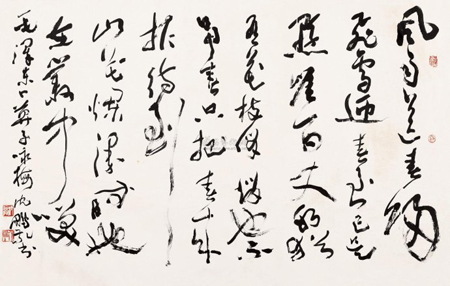 風雨送春歸
飛雪迎春到已是
懸崖百丈冰猶
有花枝俏俏也不
爭春只把春來
報待到
山花爛漫時她
在叢中笑
毛澤東卜算子詠梅沈鵬書